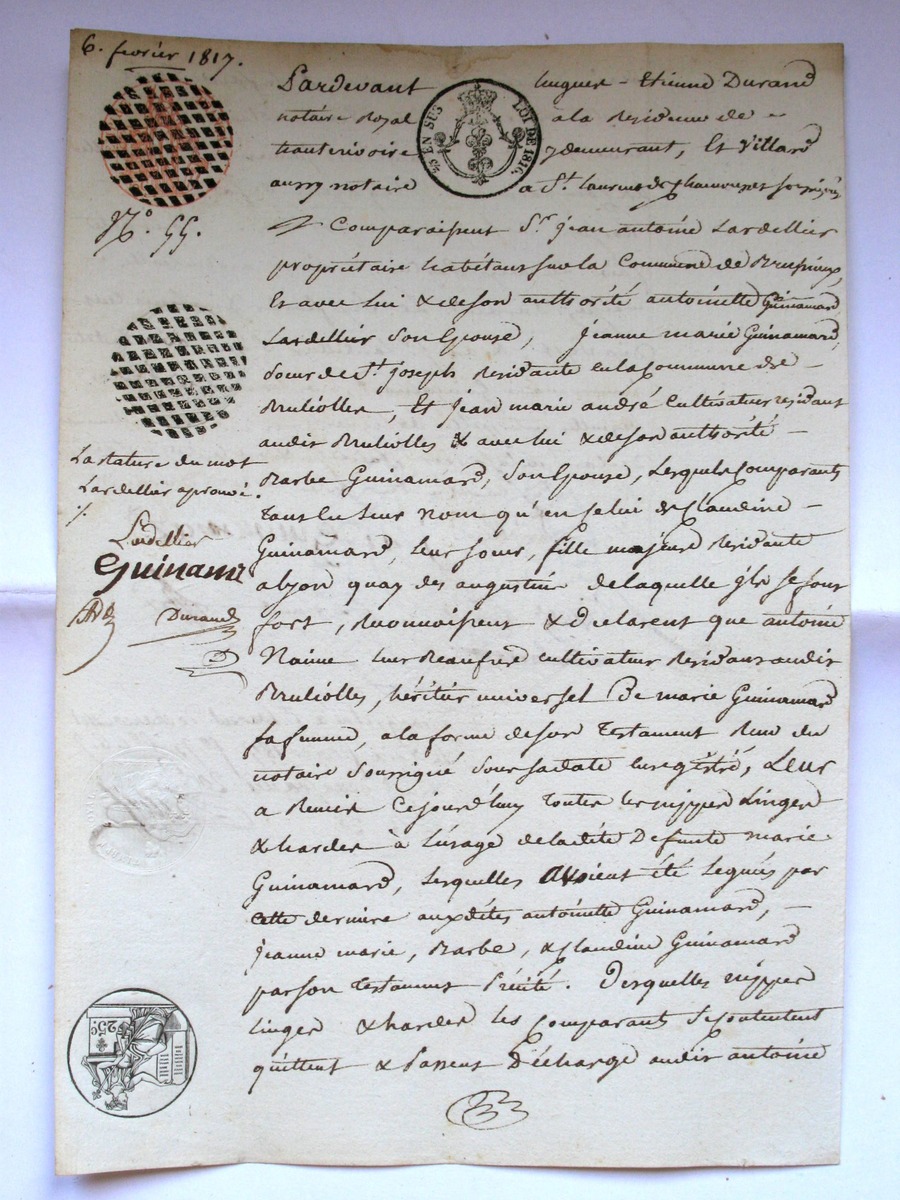 6. fevrier 1817.
Pardevant hugues - Etienne Durand
notaire Royal a la Residence de -
hauterivoire y demeurant, Et Villard
aussy notaire a St. laurent de Chamousset soussignés
5/3 EN SUS LOI DE 1816.
N.° 55.
Comparaissent Sr. jean antoine Lardellier
propriétaire habétant sur la Commune de Brussieux,
Et avec lui & de son authorité antoinette Guinamard
Lardellier Son Epouse, Jeanne marie Guinamard,
Soeur de St. joseph Residante en la Commune de -
Bruliolles, Et Jean marie andré Cultivateur residant
audit Bruliolles & avec lui & de son authorité -
Barbe Guinamard, Son Epouse, Lesquels Comparants
Tant en leur nom qu'en Celui de Claudine -
Guinamard, leur soeur, fille majeure residante
a lyon quay des augustins de laquelle ils se font
fort, Reconnoissent & déclarent que antoine
Naime leur Beaufrere cultivateur Residant audit
Brulliolles, héritier universel De marie Guinamard
sa femme, a la forme de son Testament Reçu du
notaire Soussigné Sous sa date enregistré, Leur
a Remis Cejourd'huy toutes les nippes Linges
& hardes à L'usage de ladite Defunte marie
Guinamard, lesquelles avoient été Legués par
cette derniere auxdites antoinette Guinamard, -
jeanne marie, Barbe, & Claudine Guinamard
par son Testament Précité. Desquelles nippes
Linges & hardes les Comparants Se Contentent
quittent & Passent Décharge audit antoine
La rature du mot
Lardellier aprouvé.
Lardellier
Guinamr
Durand
25c.